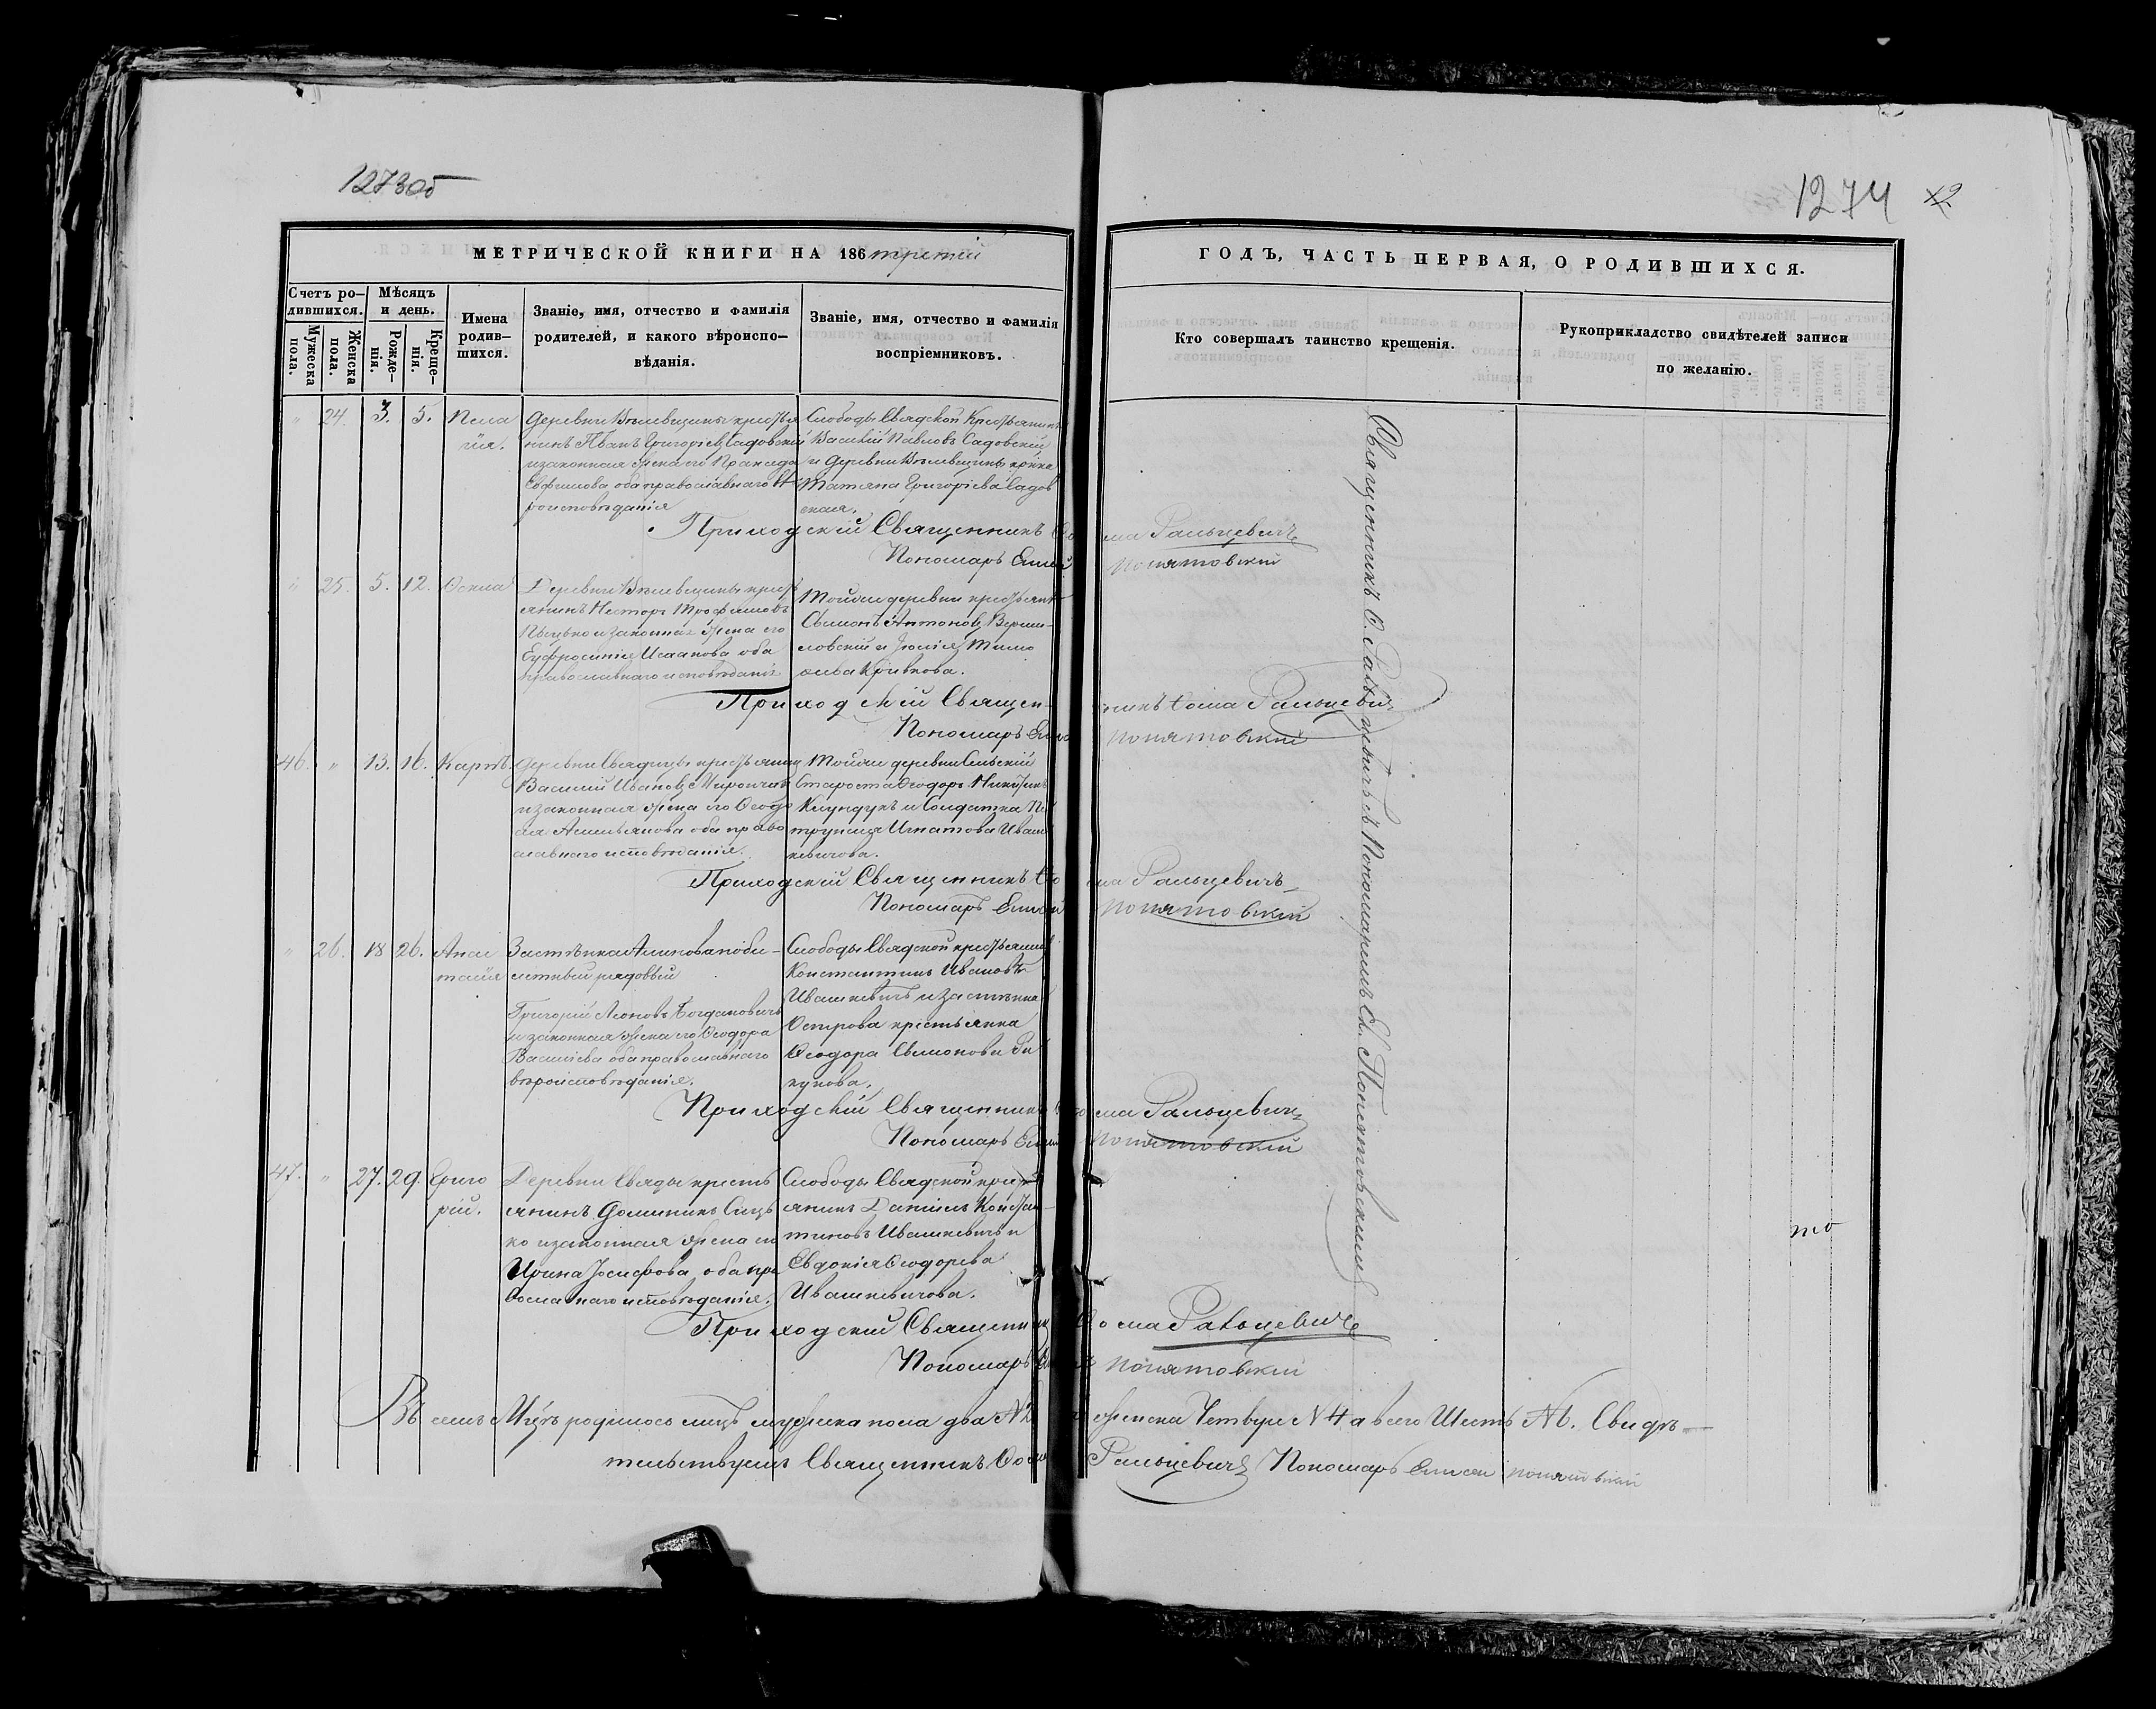 1273об
1274
МЕТРИЧЕСКОЙ КНИГИ НА 186 третій
ГОДЪ, ЧАСТЬ ПЕРВАЯ, О РОДИВШИХСЯ.
Счетъ ро-
дившихся.
Мужеска
пола.
Женска
пола.
Мѣсяцъ
и день.
Рожде-
нія.
Креще-
нія.
Имена
родив-
шихся.
Званіе, имя, отчество и фамилія
родителей, и какого вѣроиспо-
вѣданія.
Званіе, имя, отчество и фамилія
воспріемниковъ.
Кто совершалъ таинство крещенія.
Рукоприкладство свидѣтелей записи
по желанію.
" 24. 3. 5. Пела
гія.
Деревни крестья
нинъ Иванъ Григоріевъ Садовскій
и законная жена его Праксeда
Евфимова оба православнаго вѣ
роисповѣданія
Слободы Свядской Крестьянинъ
Василій Павловъ Садовскій
и деревни
Татяна Григоріева Садов
ская.
Приходскій Священникъ Ѳома Ральцевичъ
Пономарь Елисей Понятовскій
" 25. 5. 12. Ѳекла
Деревни крест
янинъ Несторъ Трофимовъ
и законная жена его
Еуфросинія Исаакова оба
православнаго исповѣданія
Тойже деревни крестьянинъ
Свмонъ Антоновъ
и Юлія Тимо
Кривкова.
Приходскій Священникъ Ѳома Ральцевичъ
Пономарь Понятовскій
46. " 13. 16. Карпъ.
Деревни Свядицы крестьянин
Василій Ивановъ Мирончикъ
и законная жена его Ѳеодо
ра Амельянова оба право
славнаго исповѣданія.
Тойже деревни Сельскій
Староста Ѳеодоръ Никитинъ
Клундукъ и Солдатка Пе
трунеля Игнатова Иваш
кевичова.
Приходскій Священникъ Ѳома Ральцевичъ
Пономарь Елисей Понятовскій
" 26. 18 26. Анас
тасія
Застѣнка
рядовый
Григорій Леоновъ Богдановичъ
и законная жена его Ѳеодора
Василіева оба православнаго
вѣроисповѣданія.
Слободы Свядской крестьянинъ
Константинъ Ивановъ
Ивашкевичъ и застѣнка
Острова крестьянка
Ѳеодора Свмонова
Приходскій Священникъ Ѳома Ральцевичъ
Пономарь Понятовскій
47. " 27. 29. Григо
рій.
Деревни Свяды кресть
янинъ Доминикъ
и законная жена его
Ирина Іосифова оба пра
вославнаго исповѣданія.
Слободы Свядской крест
янинъ Даніилъ Констан-
тиновъ Ивашкевичъ и
Евдокія Ѳеодорова
Ивашкевичова.
Приходскій Священникъ Ѳома Ральцевичъ
Пономарь Понятовскій
Священникъ Ѳ. Ральцевичъ съ Пономаремъ Ел. Понятовскимъ
то
Въ семъ Мцѣ родилось лицъ мужеска пола два №2 женска Четыре №4 а всего Шесть №6. Свидѣ-
тельствуемъ Священникъ Ѳома Ральцевичъ Пономарь Елисей Понятовскій